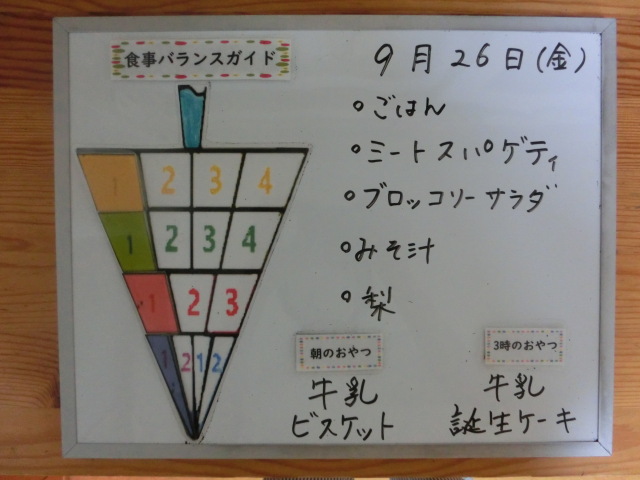 食事バランスガイド
9月26日(金)
ごはん
ミートスパゲティ
ブロッコリーサラダ
みそ汁
梨
1 2 3 4
1 2 3 4
1 2 3
1 2 1 2
朝のおやつ
牛乳
ビスケット
3時のおやつ
牛乳
誕生ケーキ